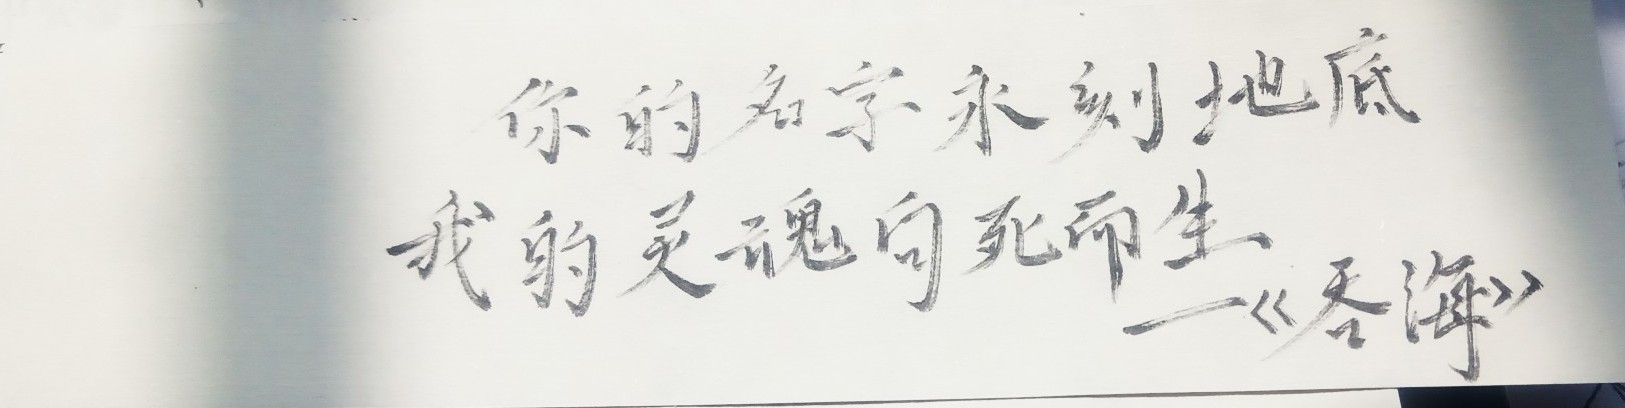 你的名字永刻地底
我的灵魂向死而生
—《吞海》